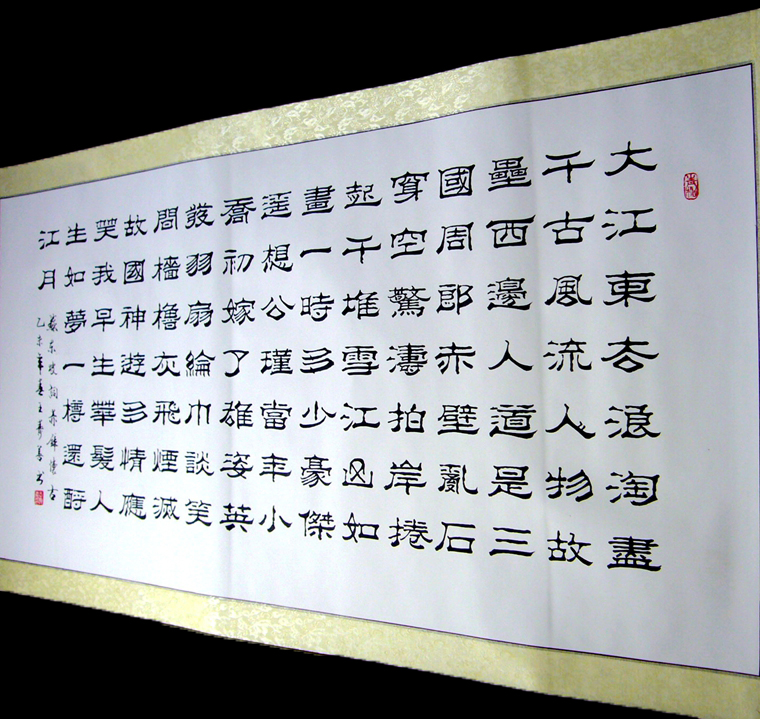 大江東去浪淘盡
千古風流人物故
壘西邊人道是三
國周郎赤壁亂石
穿空驚濤拍岸捲
起千堆雪江山如
畫一時多少豪傑
遥想公瑾當年小
喬初嫁了雄姿英
發羽扇綸巾談笑
間檣櫓灰飛煙滅
故國神遊多情應
笑我早生華髮人
生如夢一樽還酹
江月
蘇東坡詞赤壁懷古
乙未年春